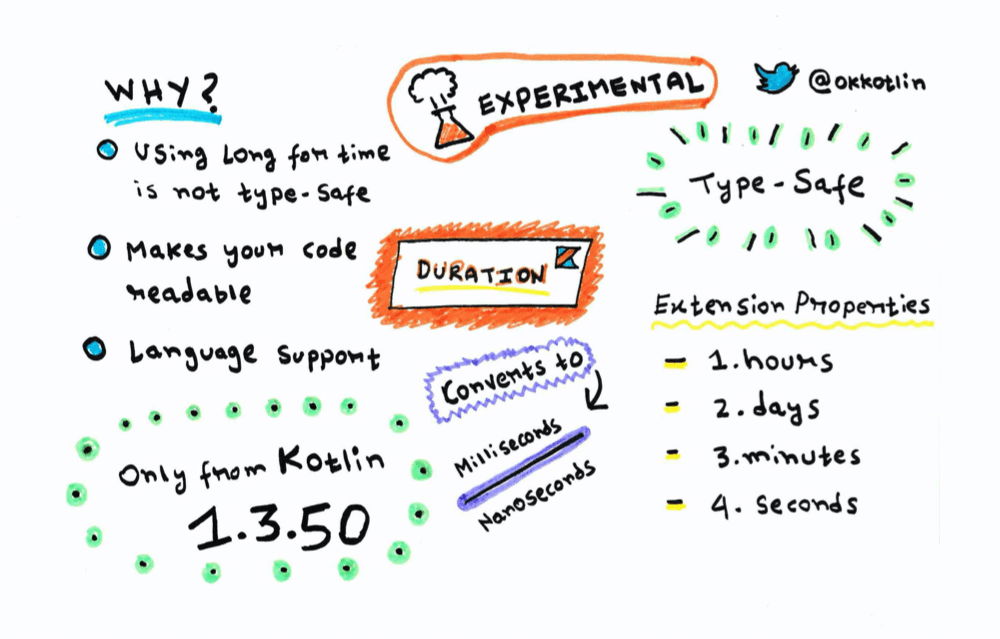 WHY?
Using Long for time
is not type-safe
Makes your code
readable
Language support
Only from Kotlin
1.3.50
EXPERIMENTAL
DURATION
Converts to
Milliseconds
Nanoseconds
@okkotlin
Type-Safe
Extension Properties
1.hours
2.days
3.minutes
4. seconds